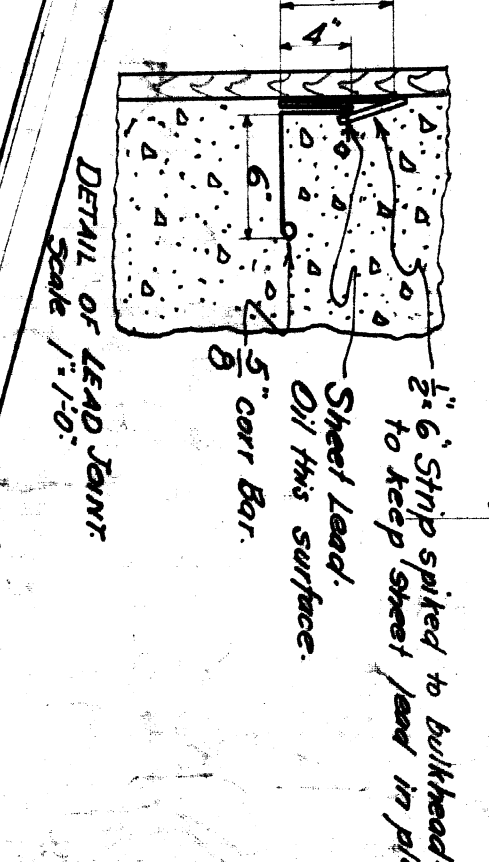 4"
6"
½" x 6" Strip spiked to bulkhead
to keep sheet lead in
Sheet Lead.
Oil this surface.
5/8" corr Bar.
DETAIL OF LEAD JOINT.
Scale 1"=1'-0".